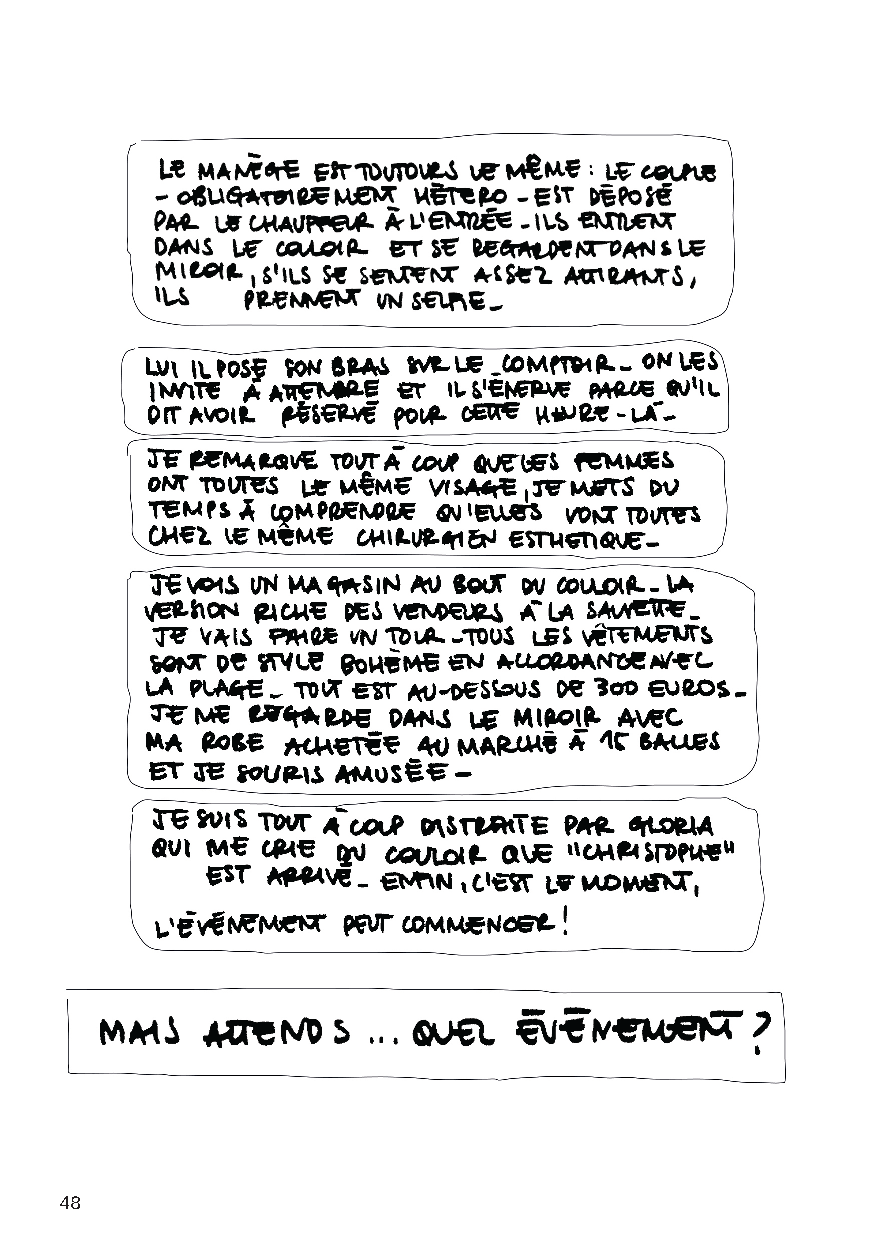 LE MANÈGE EST TOUTOURS LE MÊME : LE COUPLE
- OBLIGATOIREMENT HÉTERO - EST DÉPOSÉ
PAR LE CHAUFFEUR À L'ENTRÉE - ILS ENTRENT
DANS LE COULOIR ET SE REGARDENT DANS LE
MIROIR, S'ILS SE SENTENT ASSEZ ATTIRANTS,
ILS PRENNENT UN SELFIE -
LUI IL POSE SON BRAS SUR LE COMPTOIR - ON LES
INVITE À ATTENDRE ET IL S'ÉNERVE PARCE QU'IL
DIT AVOIR RÉSERVÉ POUR CETTE HEURE-LÀ -
JE REMARQUE TOUT À COUP QUE LES FEMMES
ONT TOUTES LE MÊME VISAGE, JE METS DU
TEMPS À COMPRENDRE QU'ELLES VONT TOUTES
CHEZ LE MÊME CHIRURGIEN ESTHETIQUE -
JE VOIS UN MAGASIN AU BOUT DU COULOIR - LA
VERSION RICHE DES VENDEURS À LA SAUVETTE -
JE VAIS FAIRE UN TOUR - TOUS LES VÊTEMENTS
SONT DE STYLE BOHÈME EN ACCORDANCE AVEC
LA PLAGE - TOUT EST AU-DESSOUS DE 300 EUROS -
JE ME REGARDE DANS LE MIROIR AVEC
MA ROBE ACHETÉE AU MARCHÉ À 15 BALLES
ET JE SOURIS AMUSÉE -
JE SUIS TOUT À COUP DISTRAITE PAR GLORIA
QUI ME CRIE DU COULOIR QUE "CHRISTOPHE"
EST ARRIVÉ - ENFIN, C'EST LE MOMENT,
L'ÉVÉNEMENT PEUT COMMENCER !
MAIS ATTENDS ... QUEL ÉVÉNEMENT ?
48